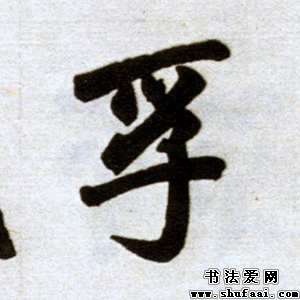 孚
书法爱网
www.shufaai.com